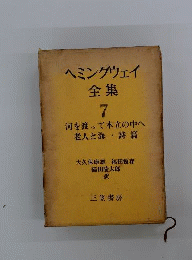 ヘミングウェイ
全集
7
河を渡って木立の中へ
老人と海・詩篇
大久保康雄 福田恆存
福田陸太郎
訳
三笠書房